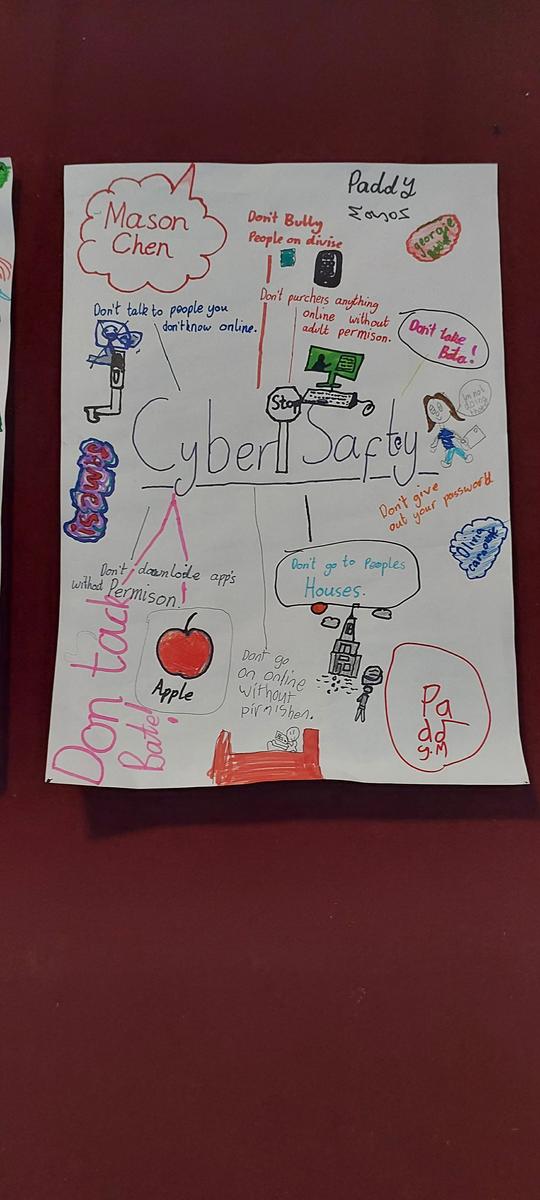 Mason
Chen
Paddy
georgie
Don't Bully
People on divise
Don't talk to people you
don't know online.
Don't purchers anything
online without
adult permison.
Don't take
Bata!
Stop
I'm not
doing
that
Cyber Safty
James
Don't give
out your password
Olivia
Don't downlode app's
without Permison.
Don't go to Peoples
Houses.
Don tack
Bate!
Apple
Dont go
on online
without
pirmishen.
Pa
dd
y.M